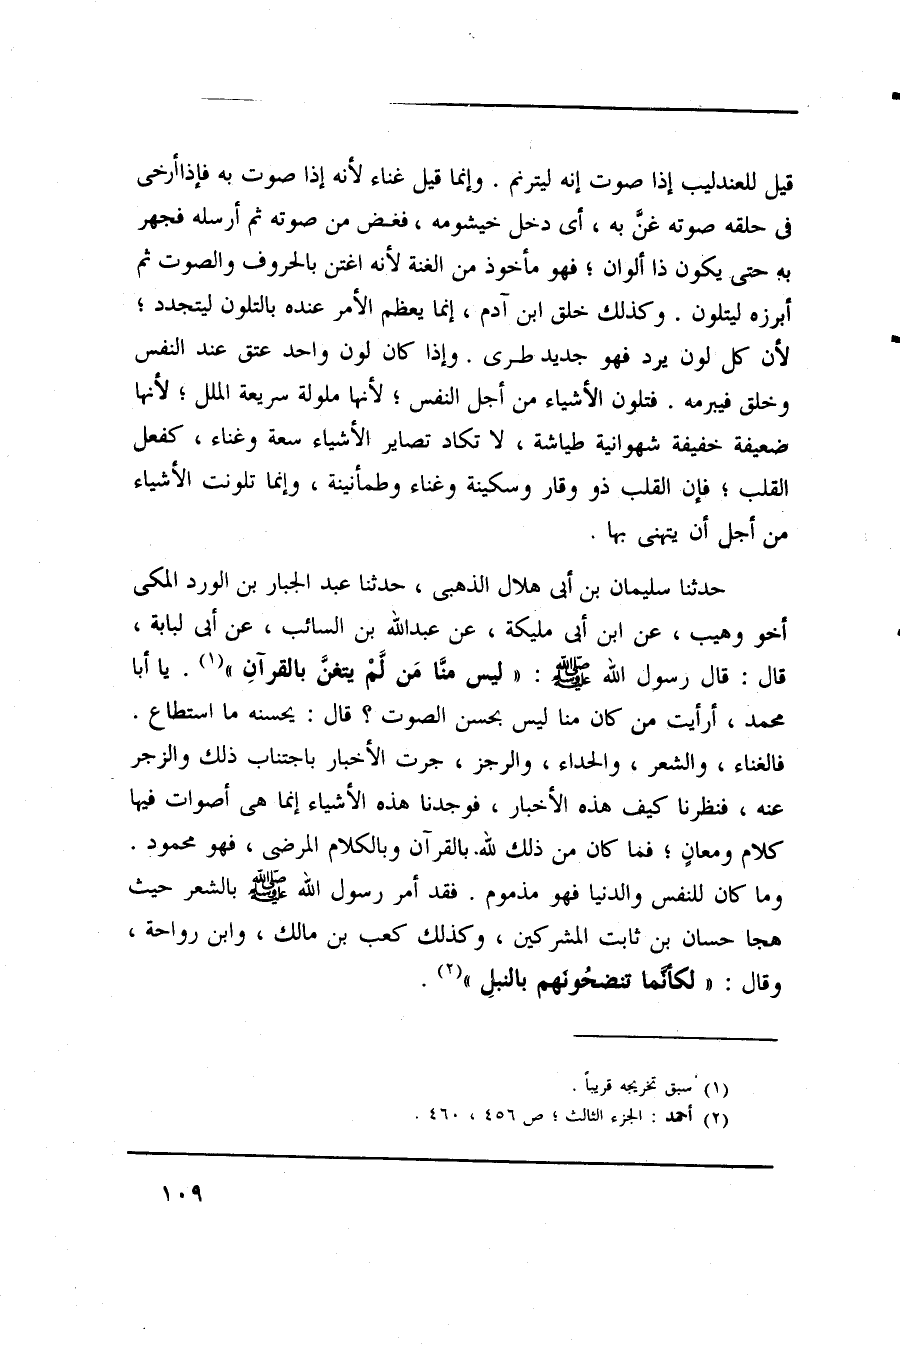 قيل للعندليب إذا صوت إنه ليترنم . وإنما قيل غناء لأنه إذا صوت به فإذاأرخى
فى حلقه صوته غنَّ به ، أى دخل خيشومه ، فغـض من صوته ثم أرسله فجهر
به حتى يكون ذا ألوان ؛ فهو مأخوذ من الغنة لأنه اغتن بالحروف والصوت ثم
أبرزه ليتلون . وكذلك خلق ابن آدم ، إنما يعظم الأمر عنده بالتلون ليتجدد ؛
لأن كل لون يرد فهو جديد طـرى . وإذا كان لون واحد عتق عند النفس
وخلق فيبرمه . فتلون الأشياء من أجل النفس ؛ لأنها ملولة سريعة الملل ؛ لأنها
ضعيفة خفيفة شهوانية طياشة ، لا تكاد تصاير الأشياء سعة وغناء ، كفعل
القلب ؛ فإن القلب ذو وقار وسكينة وغناء وطمأنينة ، وإنما تلونت الأشياء
من أجل أن يتهنى بها .
حدثنا سليمان بن أبى هلال الذهبى ، حدثنا عبد الجبار بن الورد المكى
أخو وهيب ، عن ابن أبى مليكة ، عن عبدالله بن السائب ، عن أبى لبابة ،
قال : قال رسول الله ﷺ : « ليس منَّا مَن لَّمْ يتغنَّ بالقرآنِ »(١) . يا أبا
محمد ، أرأيت من كان منا ليس بحسن الصوت ؟ قال : يحسنه ما استطاع .
فالغناء ، والشعر ، والحداء ، والرجز ، جرت الأخبار باجتناب ذلك والزجر
عنه ، فنظرنا كيف هذه الأخبار ، فوجدنا هذه الأشياء إنما هى أصوات فيها
كلام ومعانٍ ؛ فما كان من ذلك لله بالقرآن وبالكلام المرضى ، فهو محمود .
وما كان للنفس والدنيا فهو مذموم . فقد أمر رسول الله ﷺ بالشعر حيث
هجا حسان بن ثابت المشركين ، وكذلك كعب بن مالك ، وابن رواحة ،
وقال : « لكأنَّما تنضحُونَهم بالنبلِ »(٢) .
(١) سبق تخريجه قريباً .
(٢) أحمد : الجزء الثالث ؛ ص ٤٥٦ ، ٤٦٠ .
١٠٩